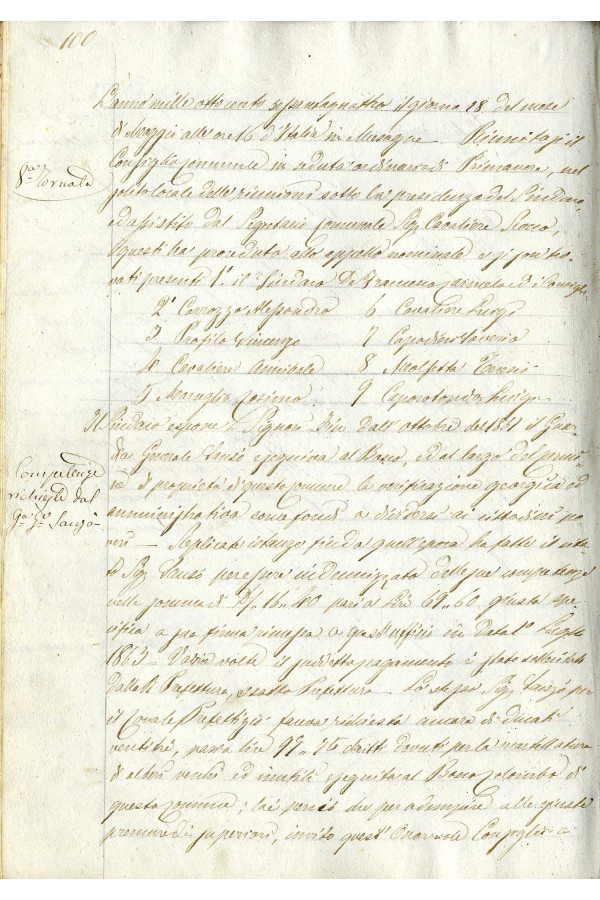 100
L'anno mille ottocento sessantaquattro il giorno 18 del mese
di Maggio alle ore 16 d'Italia in Mesagne. Riunitasi il
Consiglio Comunale in seduta ordinaria di Primavera, nel
solito locale delle riunioni sotto la presidenza del Sindaco,
ed assistito dal Segretario Comunale Sig. Cavaliere
Questi ha proceduto allo appello nominale e si son tro
vati presenti 1° il Sindaco ed i Consigli
8a Tornata
2° Carrozzo Alessandro 6 Cavaliere Luigi
3 Profilo Vincenzo 7 Capodieci Saverio
4 Cavaliere Annibale 8
5 Maruglia Cosimo 9 Luigi
Il Sindaco espone = Signori Fin dall'ottobre del 1861 il Guar
dia Generale Sansò eseguiva al Bosco, ed al largo del
di proprietà di questo comune la verificazione georgica ed
amministrativa con fondi a dividersi ai cittadini po
veri — Replicate istanze fin da quell'epoca ha fatte il
to Sig. Sansò per essere indennizzato delle sue competenze
nella somma di 16"40 pari a Lire 69"60, giusta spe
cifica a sua firma rimessa a quest'uffizio in data 1° Luglio
1863. Varie volte il suddetto pagamento è stato sollecitato
dalla R. Prefettura, e Sotto Prefettura. Lo stesso Sig. Sansò per
il Canale Prefettizio faceva richiesta ancora di ducati
ventitre, pari a lire 97"75 dritti dovuti per la martellatura
di alberi vecchi ed inutili eseguita al Bosco Colombo di
questo Comune; laì perciò che per adempiere alle giuste
premure di superiori, invito quest'Onorevole Consiglio a
Competenze
richieste dal
Sansò